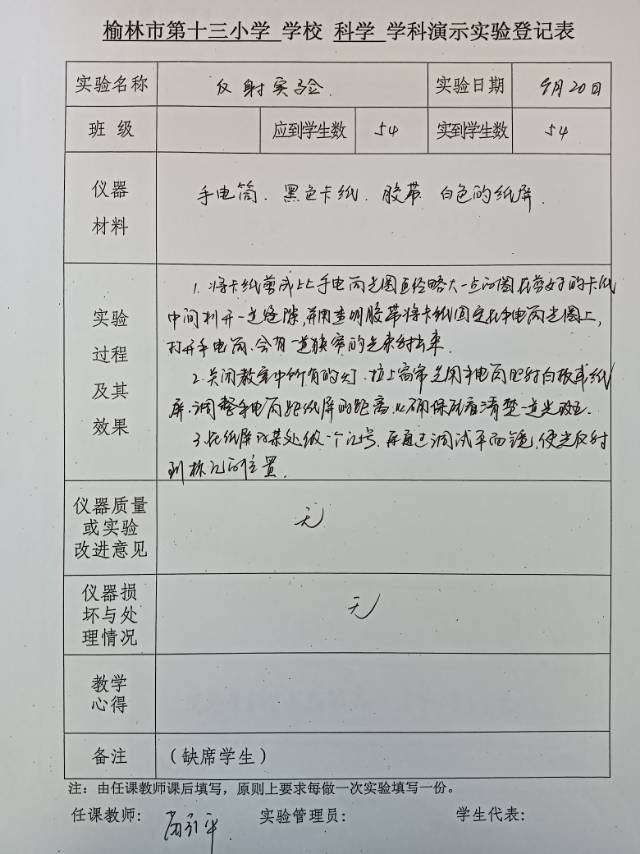 榆林市第十三小学 学校 科学 学科演示实验登记表
实验名称 反射实验 实验日期 9月20日
班 级 应到学生数 54 实到学生数 54
仪器
材料
手电筒、黑色卡纸、胶带 白色的纸屏
实验
过程
及其
效果
1. 将卡纸剪成比手电筒光圈直径略大一点的圈在剪好的卡纸
中间打开一道缝隙,并用透明胶带将卡纸固定在手电筒光圈上,
打开手电筒,会有一道狭窄的光束射出来.
2. 关闭教室中所有的灯,拉上窗帘 先用手电筒照射白板或纸
屏,调整手电筒距纸屏的距离,以确保能看清楚一道光
3. 在纸屏的某处做一个记号,再通过调试平面镜,使光反射
到标记的位置.
仪器质量
或实验
改进意见
无
仪器损
坏与处
理情况
无
教学
心得
备注 (缺席学生)
注:由任课教师课后填写,原则上要求每做一次实验填写一份。
任课教师: 实验管理员: 学生代表: